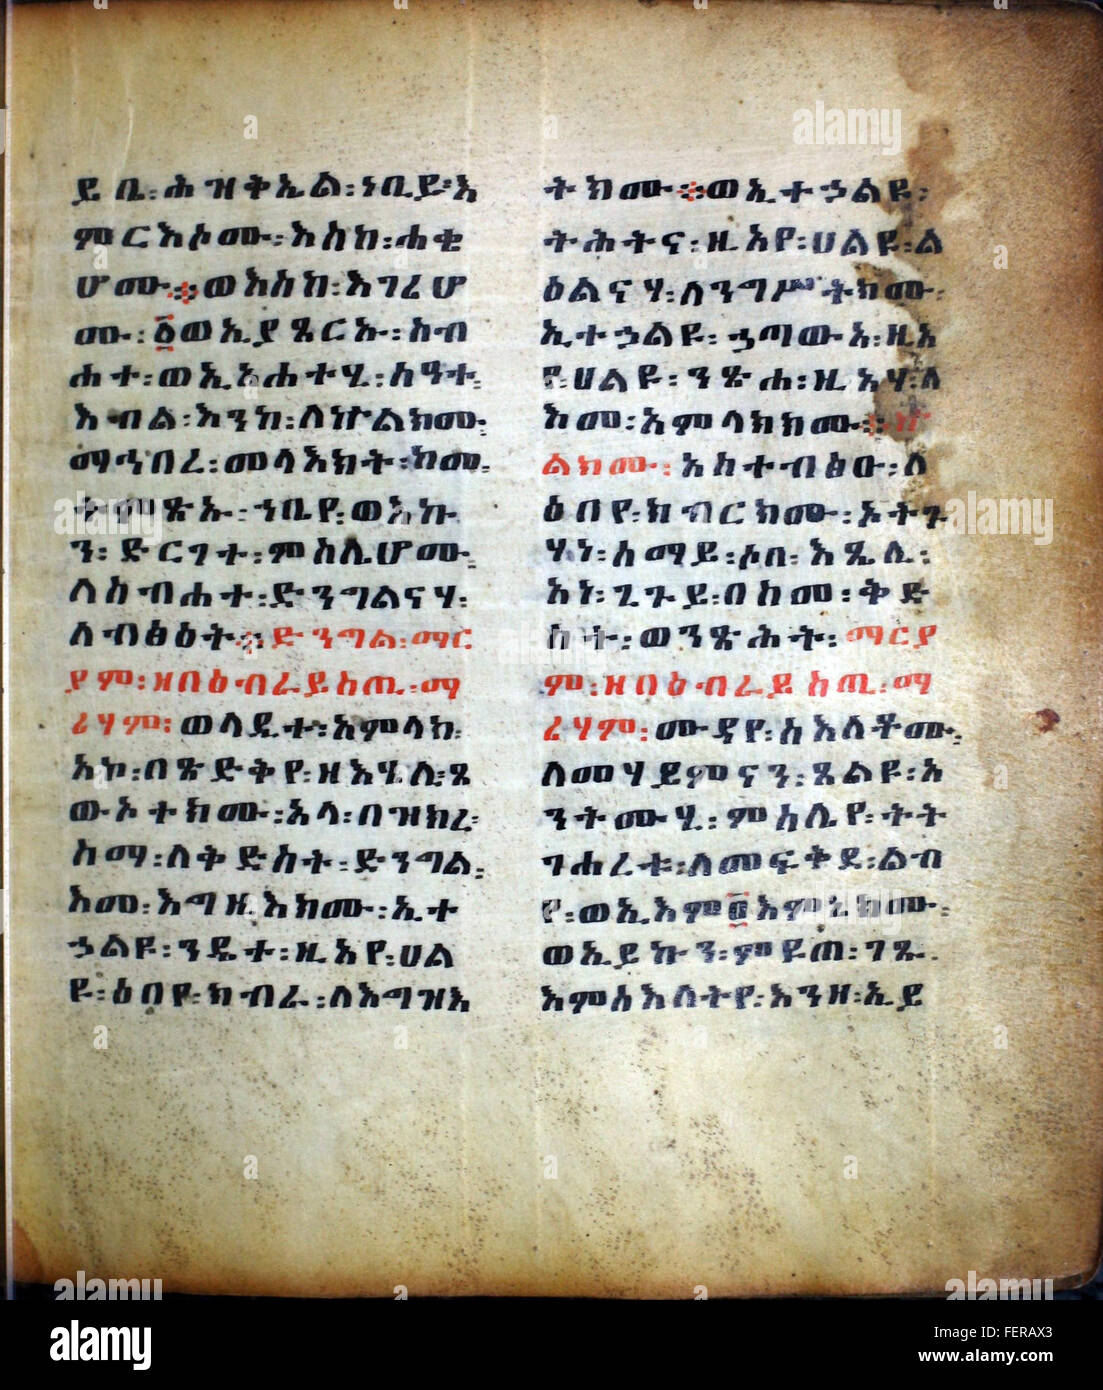 ይቤ፡ሕዝቅኤል፡ነቢይ፡እ
ምርእሶሙ፡እስከ፡ሐቂ
ሆሙ፡፡ወእስከ፡እገሪሆ
ሙ፡፩ወኢያጼርኡ፡ስብ
ሐተ፡ወኢአሐተሂ፡ሰዓተ፡
እብል፡እንከ፡ለኵልክሙ፡
ማኅበረ፡መላእክት፡ከመ፡
ትምጽኡ፡ኀቤየ፡ወእኩ
ን፡ድርገተ፡ምስሌሆሙ፡
ለስብሐተ፡ድንግልናሃ፡
ለብፅዕት፡፡ድንግል፡ማር
ያም፡ዘበዕብራይስጢ፡ማ
ሪሃም፡ወላዲተ፡አምላክ፡
አኮ፡በጽድቅየ፡ዘእሄሊ፡ጸ
ውኦተክሙ፡አላ፡በዝክረ፡
ስማ፡ለቅድስት፡ድንግል፡
እመ፡እግዚእክሙ፡ኢተ
ኃልዩ፡ንዴተ፡ዚአየ፡ሀል
ዩ፡ዕበየ፡ክብራ፡ለእግዝእ
ትክሙ፡፡ወኢተኃልዩ፡
ትሕትና፡ዚአየ፡ሀልዩ፡ል
ዕልናሃ፡ለንግሥትክሙ፡
ኢተኃልዩ፡ኃጣውአ፡ዚአ
የ፡ሀልዩ፡ንጽሐ፡ዚአሃ፡ለ
እመ፡አምላክክሙ፡፡ኵ
ልክሙ፡አስተብፅዑ፡ለ
ዕበየ፡ክብርክሙ፡ኦትጉ
ሃነ፡ሰማይ፡ሶበ፡እጼሊ፡
አነ፡ጊጉይ፡በከመ፡ቅድ
ስት፡ወንጽሕት፡ማርያ
ም፡ዘበዕብራይስጢ፡ማ
ሪሃም፡ሙዳየ፡ስእለቶሙ፡
ለመሃይምናን፡ጸልዩ፡አ
ንትሙሂ፡ምስሌየ፡ትት
ገሐረቱ፡ለመፍቅደ፡ልብ
የ፡ወኢእም፩እምኔክሙ፡
ወኢይኩን፡ምዩጠ፡ገጹ፡
እምስእለትየ፡እንዘ፡ኢይ
alamy
Image ID: FERAX3
www.alamy.com